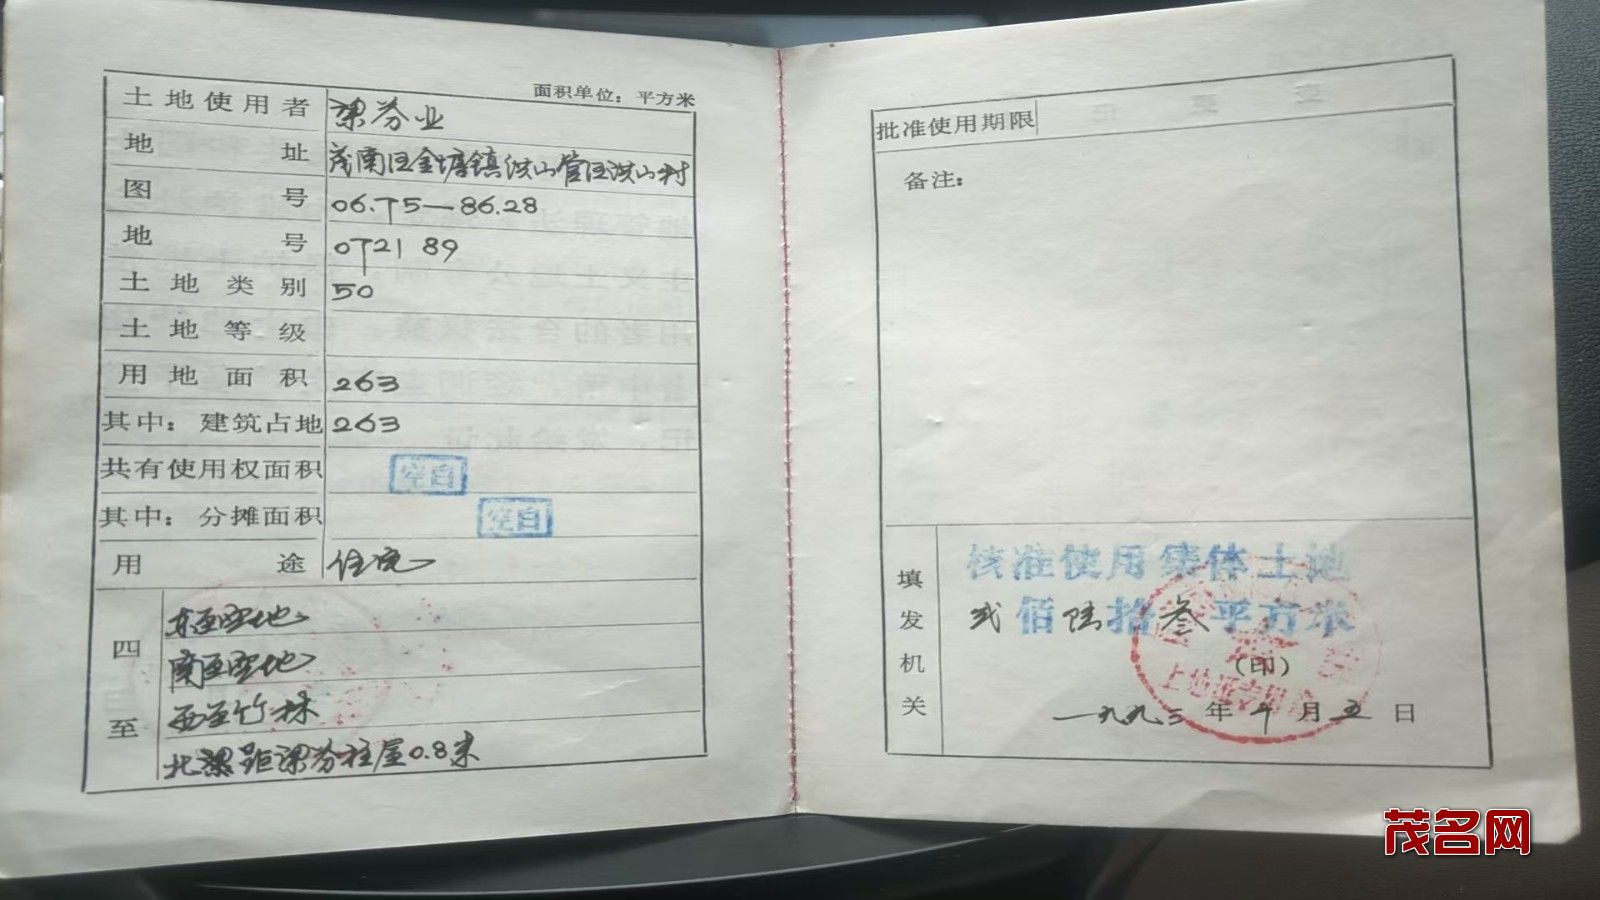 面积单位：平方米
土地使用者 梁芬业
地址 茂南区金塘镇洪山管区洪山村
图号 06.75—86.28
地号 072189
土地类别 50
土地等级
用地面积 263
其中：建筑占地 263
共有使用权面积 空白
其中：分摊面积 空白
用途 住宅
四至
东至空地
南至空地
西至竹林
北 距梁芬柱屋0.8米
批准使用期限
备注：
填发机关
核准使用集体土地
贰佰陆拾叁平方米
(印)
土地证专用
一九九三年十月五日
茂名网